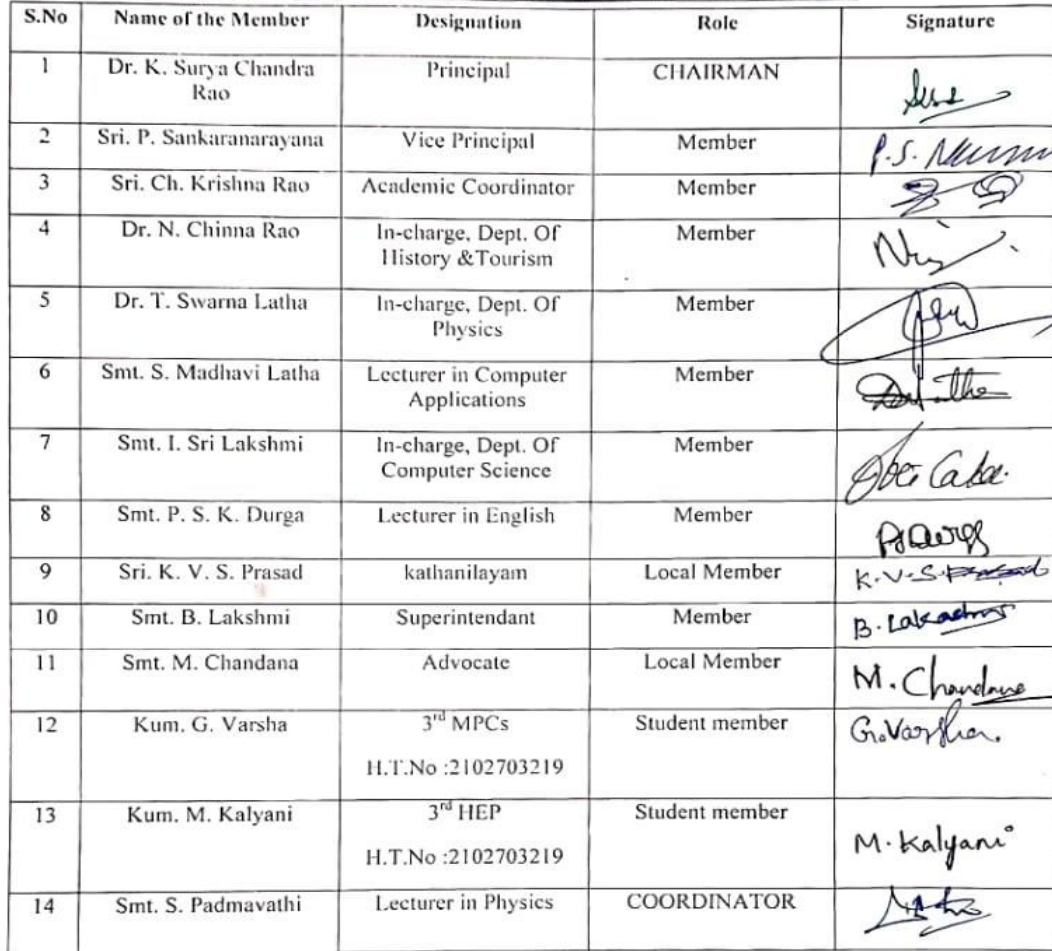 S.No Name of the Member Designation Role Signature
1 Dr. K. Surya Chandra Principal CHAIRMAN
Rao
2 Sri. P. Sankaranarayana Vice Principal Member P.S.
3 Sri. Ch. Krishna Rao Academic Coordinator Member
4 Dr. N. Chinna Rao In-charge, Dept. Of Member
History &Tourism
5 Dr. T. Swarna Latha In-charge, Dept. Of Member
Physics
6 Smt. S. Madhavi Latha Lecturer in Computer Member
Applications
7 Smt. I. Sri Lakshmi In-charge, Dept. Of Member
Computer Science
8 Smt. P. S. K. Durga Lecturer in English Member
9 Sri. K. V. S. Prasad kathanilayam Local Member K.V.S.Prasad
10 Smt. B. Lakshmi Superintendant Member B.
11 Smt. M. Chandana Advocate Local Member M. Chandana
12 Kum. G. Varsha 3rd MPCs Student member G.Varsha.
H.T.No :2102703219
13 Kum. M. Kalyani 3rd HEP Student member M. Kalyani
H.T.No :2102703219
14 Smt. S. Padmavathi Lecturer in Physics COORDINATOR